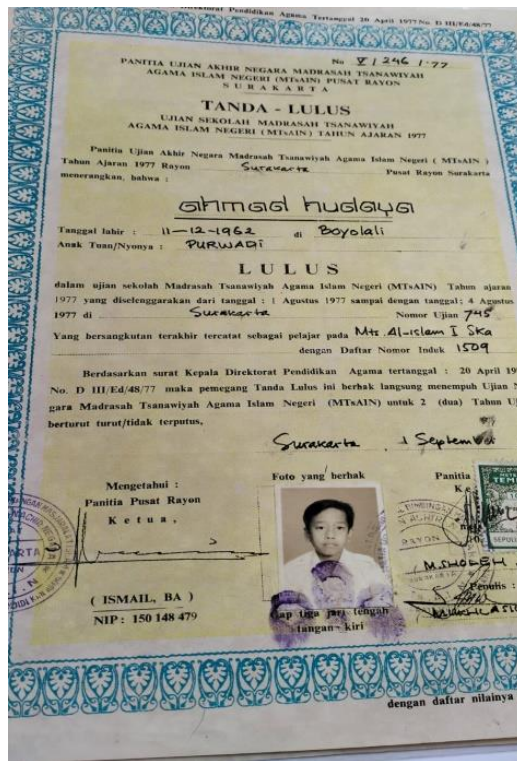 Direktorat Pendidikan Agama Tertanggal 20 April 1977 No. D III/Ed/48/77
No V / 246 / 77
PANITIA UJIAN AKHIR NEGARA MADRASAH TSANAWIYAH
AGAMA ISLAM NEGERI (MTsAIN) PUSAT RAYON
SURAKARTA
TANDA - LULUS
UJIAN SEKOLAH MADRASAH TSANAWIYAH
AGAMA ISLAM NEGERI (MTsAIN) TAHUN AJARAN 1977
Panitia Ujian Akhir Negara Madrasah Tsanawiyah Agama Islam Negeri ( MTsAIN )
Tahun Ajaran 1977 Rayon Surakarta Pusat Rayon Surakarta
menerangkan, bahwa :
ahmad hudaya
Tanggal lahir : 11-12-1962 di Boyolali
Anak Tuan/Nyonya : PURWADI
LULUS
dalam ujian sekolah Madrasah Tsanawiyah Agama Islam Negeri (MTsAIN) Tahun ajaran
1977 yang diselenggarakan dari tanggal : 1 Agustus 1977 sampai dengan tanggal; 4 Agustus
1977 di Surakarta Nomor Ujian 745
Yang bersangkutan terakhir tercatat sebagai pelajar pada Mts. Al-islam I Ska
dengan Daftar Nomor Induk 1509
Berdasarkan surat Kepala Direktorat Pendidikan Agama tertanggal : 20 April 19
No. D III/Ed/48/77 maka pemegang Tanda Lulus ini berhak langsung menempuh Ujian N
gara Madrasah Tsanawiyah Agama Islam Negeri (MTsAIN) untuk 2 (dua) Tahun Uj
berturut turut/tidak terputus,
Surakarta, 1 September
Mengetahui :
Panitia Pusat Rayon
Ketua,
Foto yang berhak
Panitia
Ke
( ISMAIL, BA )
NIP : 150 148 479
Cap tiga jari tengah
tangan kiri
M. SHOLEH
Penulis :
dengan daftar nilainya